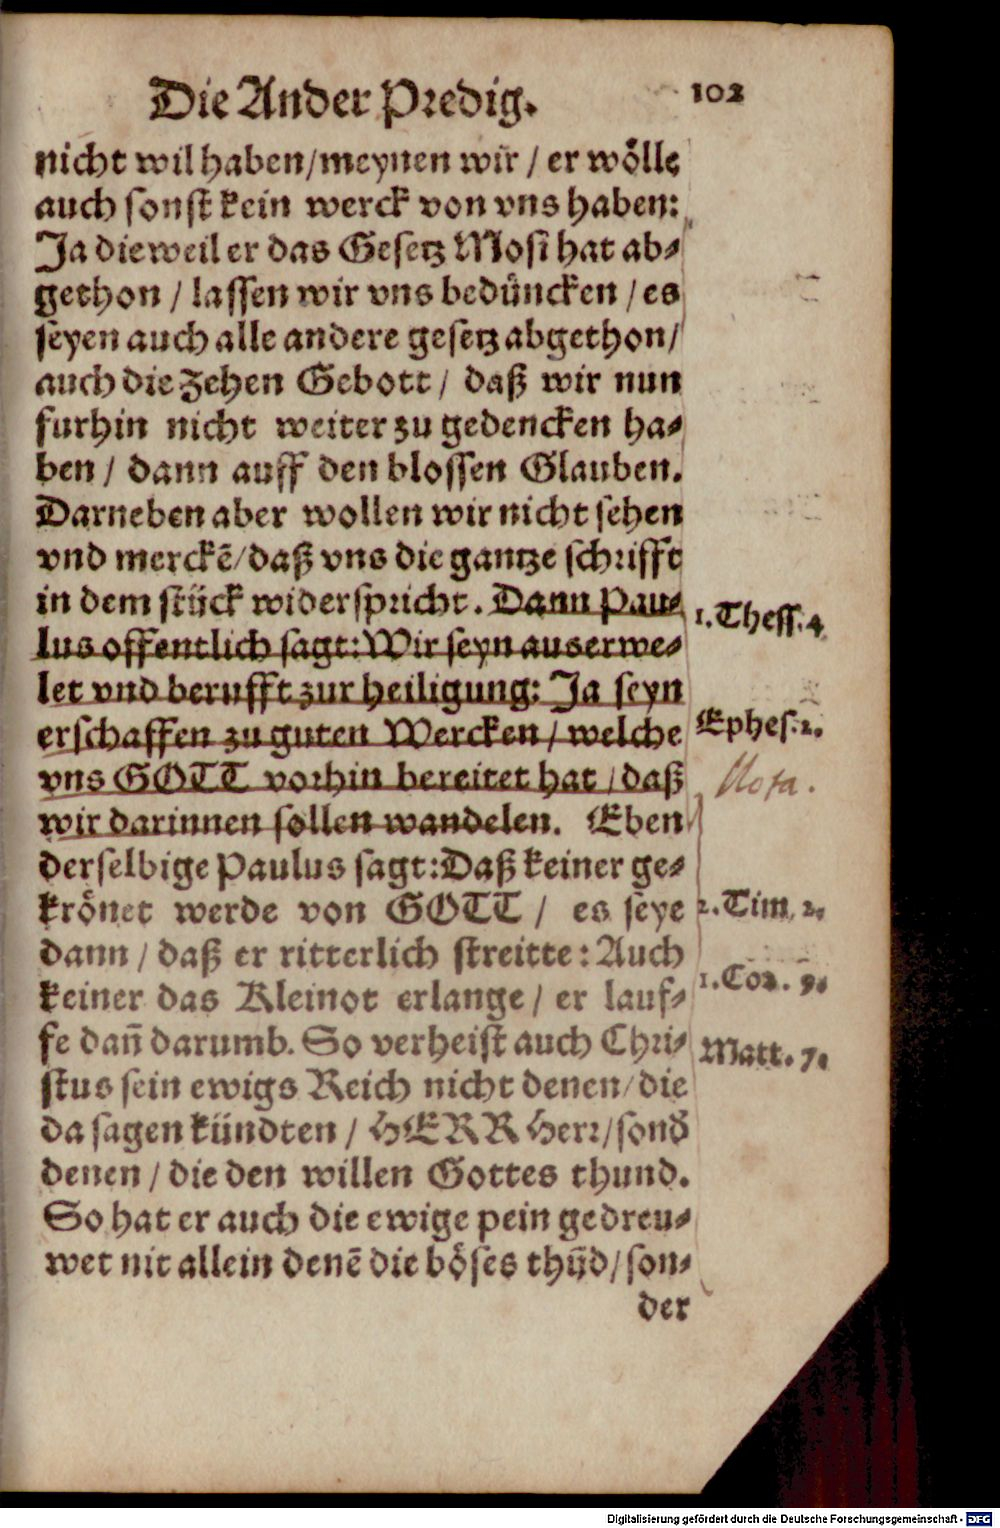 Die Ander Predig. 102
nicht wil haben/meynen wir / er wölle
auch sonst kein werck von vns haben:
Ja dieweil er das Gesetz Mosi hat ab-
gethon / lassen wir vns bedüncken / es
seyen auch alle andere gesetz abgethon/
auch die Zehen Gebott / daß wir nun
furhin nicht weiter zu gedencken ha-
ben / dann auff den blossen Glauben.
Darneben aber wollen wir nicht sehen
vnd merckē/daß vns die gantze schrifft
in dem stück widerspricht. Dann Pau-
1. Thess. 4.
lus offentlich sagt: Wir seyn auserwe-
let vnd berufft zur heiligung: Ja seyn
erschaffen zu guten Wercken / welche
Ephes. 2.
vns GOTT vorhin bereitet hat / daß
Nota.
wir darinnen sollen wandelen. Eben
derselbige Paulus sagt: Daß keiner ge-
krönet werde von GOTT / es seye
2. Tim. 2.
dann / daß er ritterlich streitte: Auch
keiner das Kleinot erlange / er lauf-
1. Cor. 9.
fe dañ darumb. So verheist auch Chri-
Matt. 7.
stus sein ewigs Reich nicht denen/die
da sagen kündten / HERR Herr/sond
denen / die den willen Gottes thund.
So hat er auch die ewige pein gedreu-
wet nit allein denē die böses thūd/son-
der
Digitalisierung gefördert durch die Deutsche Forschungsgemeinschaft - DFG